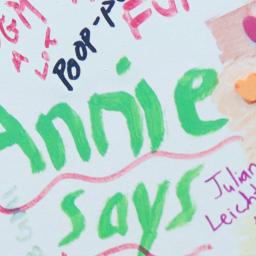 A LOT
POOP-P
FU
Annie
says
Julian
Leicht